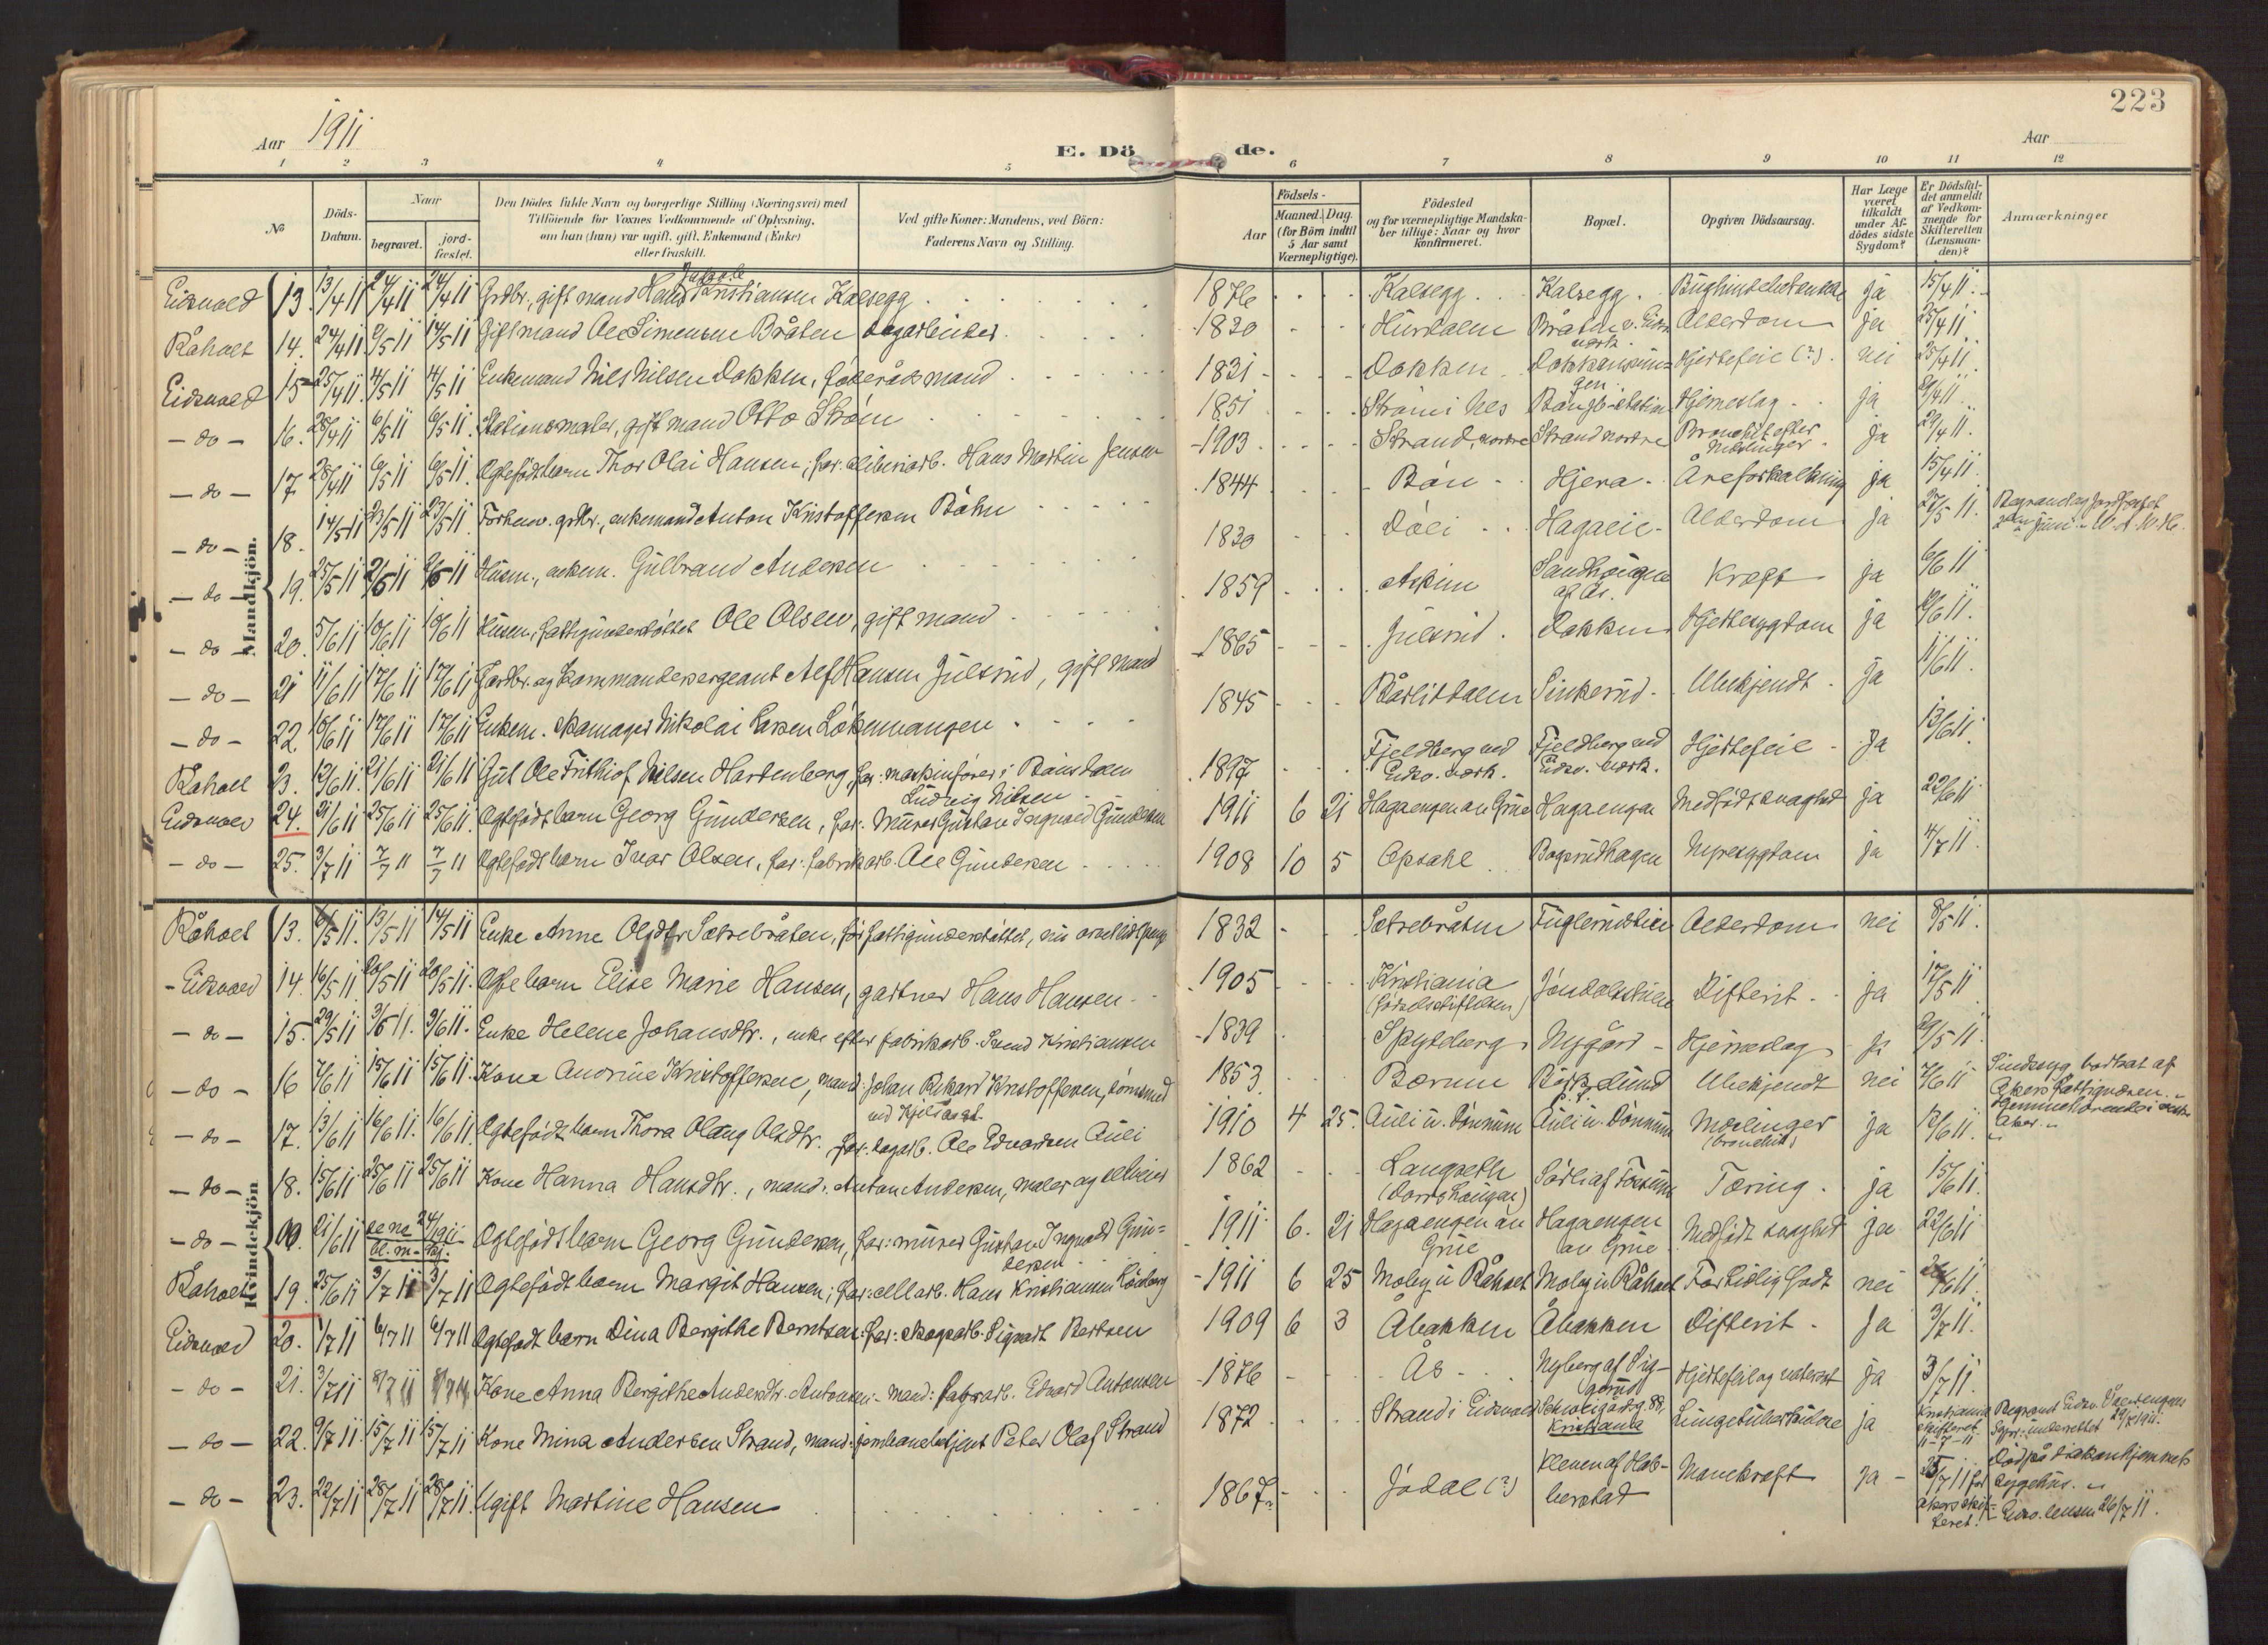 223
Aar 1911
E. Döde.
Aar
1 2 3 4 5 6 7 8 9 10 11 12
No
Döds-Datum.
Naar
begravet.
jord-fæstet.
Den Dödes fulde Navn og borgerlige Stilling (Næringsvei) med
Tilföiende for Voxnes Vedkommende af Oplysning,
om han (hun) var ugift, gift, Enkemand (Enke)
eller fraskilt.
Ved gifte Koner: Mandens, ved Börn:
Faderens Navn og Stilling.
Aar
Födsels-
Maaned. Dag.
(for Börn indtil
5 Aar samt
Værnepligtige).
Födested
og for værnepligtige Mandska-
ber tillige: Naar og hvor
konfirmeret.
Bopæl.
Opgiven Dödsaarsag.
Har Læge
været
tilkaldt
under Af-
dödes sidste
Sygdom?
Er Dödsfal-
det anmeldt
af Vedkom-
mende for
Skifteretten
(Lensman-
den)?
Anmærkninger
Mandkjön.
Eidsvold 13. 13/4 11 24/4 11 24/4 11 Grdbr., gift mand Hans Kristiansen Kalsegg 1876 Kalsegg Kalsegg Bughindebetændelse ja 15/4 11.
Råholt 14. 24/4 11 2/5 11 14/5 11 Gift mand Ole Simensen Bråten dagarbeider 1830 Hurdalen Bråten v. Eidsv. værk Alderdom ja 25/4 11
Eidsvold 15 25/4 11 4/5 11 4/5 11 Enkemand Nils Nilsen Dokken, föderådsmand 1831 Dokken Hjertefeil (?) nei 25/4 11.
- do - 16. 28/4 11 6/5 11 6/5 11. Stationsmester, gift mand Otto Ström 1851 Ström i Nes Hjerneslag ja 29/4 11.
- do - 17 28/4 11 6/5 11 6/5 11. Ægtefödt barn Thor Olai Hansen, far: Hans Martin Jensen 1903 Strand, nordre Strand nordre Bronchit efter Mæslinger ja 29/4 11.
- do - 18. 14/5 11 23/5 11 23/5 11. Forhenv. grdbr., enkemand Anton Kristoffersen Böhn 1844 Bön Hjera Åreforkalkning ja 15/4 11
- do - 19. 25/5 11 2/6 11 2/6 11 Husm., enkem. Gulbrand Andersen 1830 Döli Hagalie Alderdom ja 27/5 11.
- do - 20. 5/6 11 10/6 11 10/6 11 Husm., fattigunderstöttet Ole Olsen, gift mand 1859 Askim Kræft ja 6/6 11
- do - 21 11/6 11 17/6 11 17/6 11 Gårdbr. og Kommandersergeant Alf Hansen Julsrud, gift mand 1865 Julsrud Dokken Hjertesygdom ja
- do - 22. 10/6 11 17/6 11 17/6 11 Enkem. skomager Nikolai Larsen Lökenvangen 1845 Bårlidalen Sinkerud Ubekjendt ja 11/6 11.
Råholt 23. 12/6 11 21/6 11 21/6 11 Gut Ole Frithiof Nilsen Hardenberg, far: maskinförer i Bönsdalen Ludvig Nilsen 1897 Fjeldberg ved Eidsv. værk. Fjeldberg ved Eidsv. værk. Hjertefeil ja 13/6 11.
Eidsvold 24. 21/6 11 25/6 11 25/6 11. Ægtefödt barn Georg Gundersen, far: Murer Gustav Ingvald Gundersen 1911 6 21 Hagaengen Hagaengen Medfödt svaghed ja 22/6 11
- do - 25. 3/7 11 7/7 11 7/7 11 Ægtefödt barn Ivar Olsen, far: fabrikarb. Ole Gundersen 1908 10 5 Opsahl Bogsrudhagen Nyresygdom ja 4/7 11.
Kvindekjön
Råholt 13. 6/5 11. 13/5 11 14/5 11 Enke Anne Olsdtr Sætrebråten, 1832 Sætrebråten Alderdom nei 8/5 11.
Eidsvold 14. 16/5 11 20/5 11 20/5 11. Ægte barn Elise Marie Hansen, gartner Hans Hansen 1905 Kristiania (Födselsstiftelsen) Difterit ja 17/5 11
- do - 15. 29/5 11 3/6 11. 3/6 11. Enke Helene Johansdtr., enke efter fabrikarb. Svend Kristiansen 1839 Spydeberg Nygård Hjerneslag ja 29/5 11.
- do - 16 7/6 11 15/6 11 15/6 11. Kone Andrine Kristoffersen, mand: Johan Rikard Kristoffersen, 1853 Bærum Ubekjendt nei 7/6 11 Sindssyg, bortsat af Akers fattigvæsen.
- do - 17. 13/6 11 16/6 11. 16/6 11. Ægtefödt barn Thora Olaug Olsdtr. far: dagarb. Ole Edvardsen Auli 1910 4 25. Auli u. Dönnum Auli u. Dönnum Mæslinger (bronchit) ja
- do - 18. 15/6 11 25/6 11 25/6 11 Kone Hanna Hansdtr., mand: Anton Andersen, maler 1862 Langseth Tæring ja 15/6 11.
- do - 21/6 11 Ægtefödt barn Georg Gundersen, far: murer Gustav Ingvald Gundersen 1911 6. 21 Hagaengen Hagaengen Medfödt svaghed ja 22/6 11
Råholt 19. 25/6 11 3/7 11 3/7 11 Ægtefödt barn Margit Hansen; far: Hans Kristiansen 1911 6 25 Moby u. Råholt Moby u. Råholt For tidlig födt nei
Eidsvold 20. 1/7 11 6/7 11 6/7 11 Ægtefödt barn Dina Bergithe Berntsen: far: skogsarb. Sigvart Berntsen 1909 6 3 Åbakken Åbakken Difterit ja 3/7 11.
- do - 21. 3/7 11 8/7 11 Kone Anna Bergithe Andersdtr. Antonsen - mand: fabrarb. Edvard Antonsen 1876 Ås Nyberg af Hjertefeil og vatersot ja 3/7 11.
- do - 22. 9/7 11. 15/7 11 15/7 11 Kone Mina Andersen Strand, mand: jernbanebetjent Peter Olaf Strand 1872 Strand i Eidsvold Schweigårdsg. 88, Kristiania Lungetuberkulose ja Kristiania skifteret 11-7-11
- do - 23. 22/7 11 28/7 11 28/7 11. Ugift Martine Hansen 1867 Jödal (?) Kleven af Habberstad Mavekræft ja 25/7 11 for Akers skifteret. Död på diakonhjemmets sygehus. Eidsv. lensm 26/7 11.